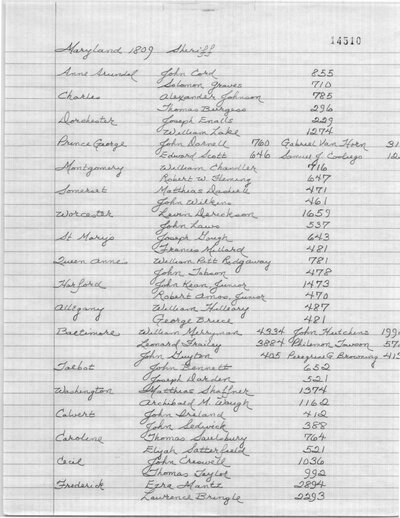 14310
Maryland 1809 Sheriff
Anne Arundel John Cord 855
Solomon Groves 710
Charles Alexander Johnson 785
Thomas Burgess 296
Dorchester Joseph Enalls 229
William Lake 1274
Prince George John Darnell 760 Gabriel Van Horn 31
Edward Scott 646 Samuel J. Coolidge 12
Montgomery William Chandler 716
Robert W. Fleming 647
Somerset Matthias Dashiell 471
John Wilkins 461
Worcester Levin Derickson 1659
John Laws 537
St Marys Joseph Gough 643
Francis Millard 481
Queen Anne William Pitt Ridgaway 781
John Tabson 478
Harford John Kean Junior 1473
Robert Amos, Junior 470
Allegany William Hilleary 487
George Bruce 481
Baltimore William Merryman 4334 John Hutchins 199
Leonard Frailey 3884 Philemon 57
John Guyton 405 Peregrine G Browning 41
Talbot John Bennett 652
Joseph Darden 521
Washington Matthias Shaffner 1374
Archibald M. Waugh 1162
Calvert John Ireland 412
John Sedwick 388
Carolene Thomas Saulsbury 764
Elijah Satterfield 521
Cecil John Creswell 1036
Thomas Taylor 992
Frederick Ezra Mantz 2894
Lawrence Brengle 2293